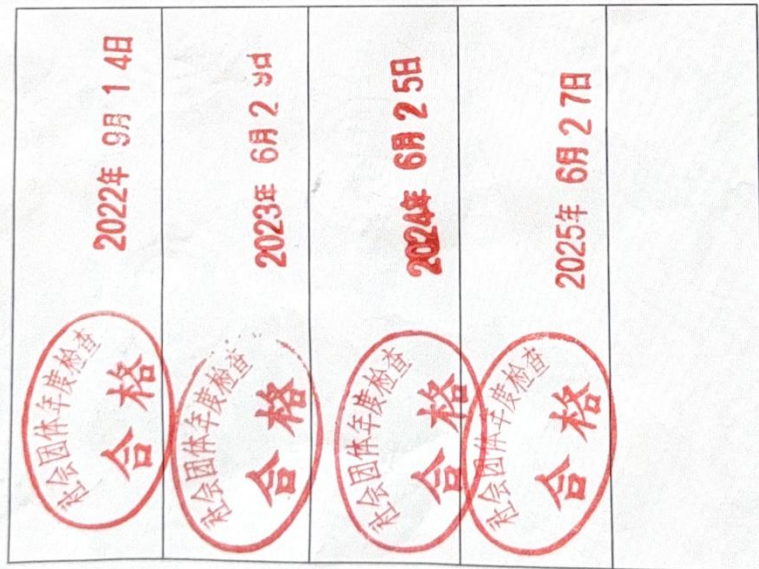 社会团体年度检查
合格
2022年 9月 1 4日
社会团体年度检查
合格
2023年 6月 2 9日
社会团体年度检查
合格
2024年 6月 2 5日
社会团体年度检查
合格
2025年 6月 2 7日